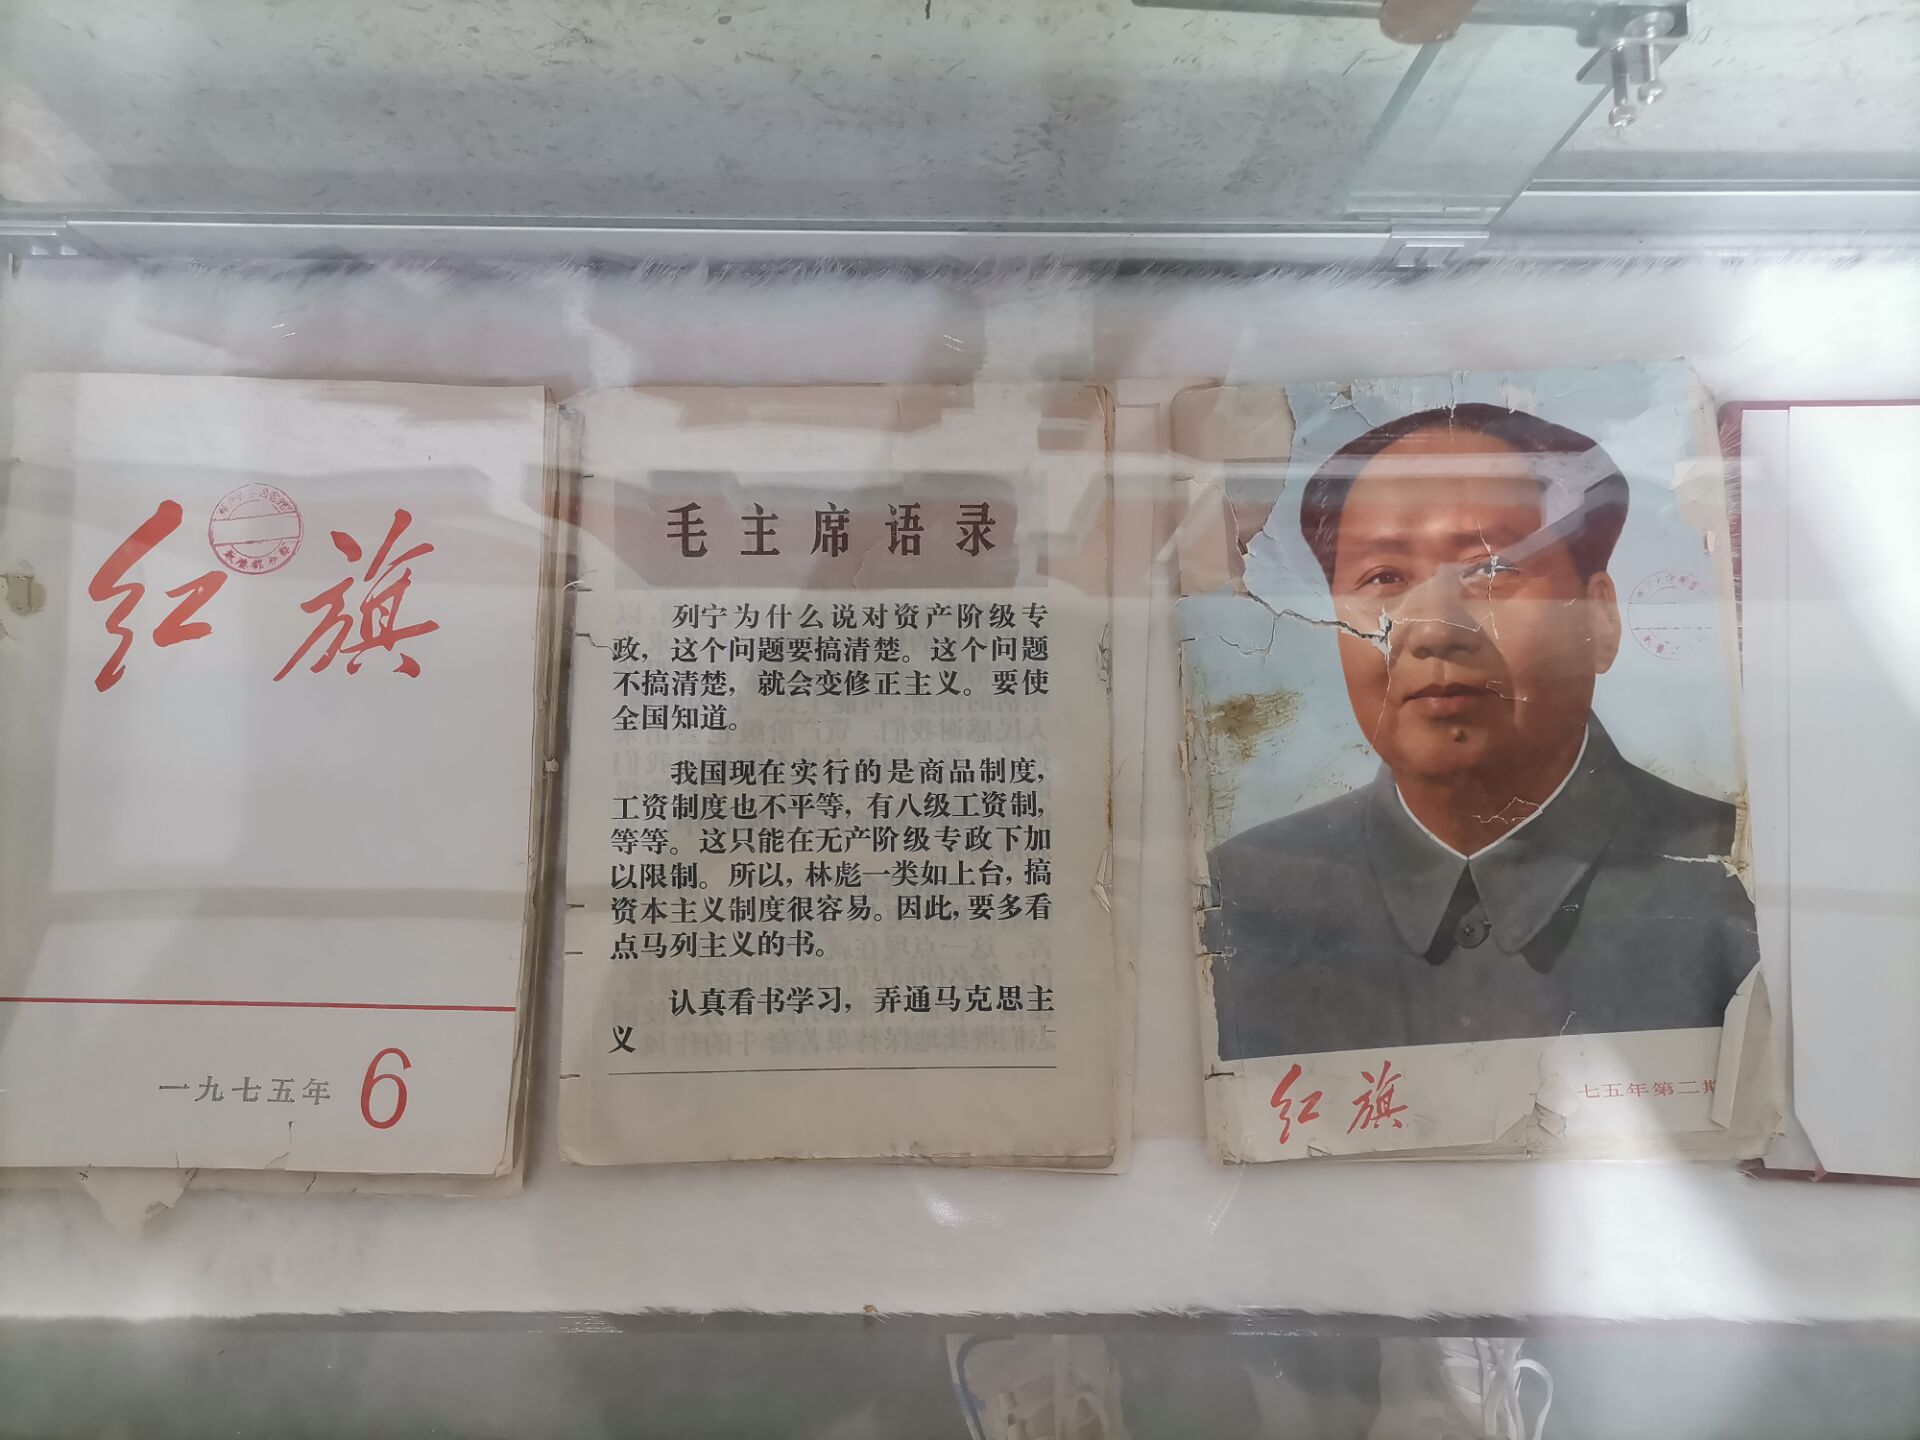 红旗
一九七五年 6
毛主席语录
列宁为什么说对资产阶级专
政，这个问题要搞清楚。这个问题
不搞清楚，就会变修正主义。要使
全国知道。
我国现在实行的是商品制度，
工资制度也不平等，有八级工资制，
等等。这只能在无产阶级专政下加
以限制。所以，林彪一类如上台，搞
资本主义制度很容易。因此，要多看
点马列主义的书。
认真看书学习，弄通马克思主
义
红旗
七五年第二期